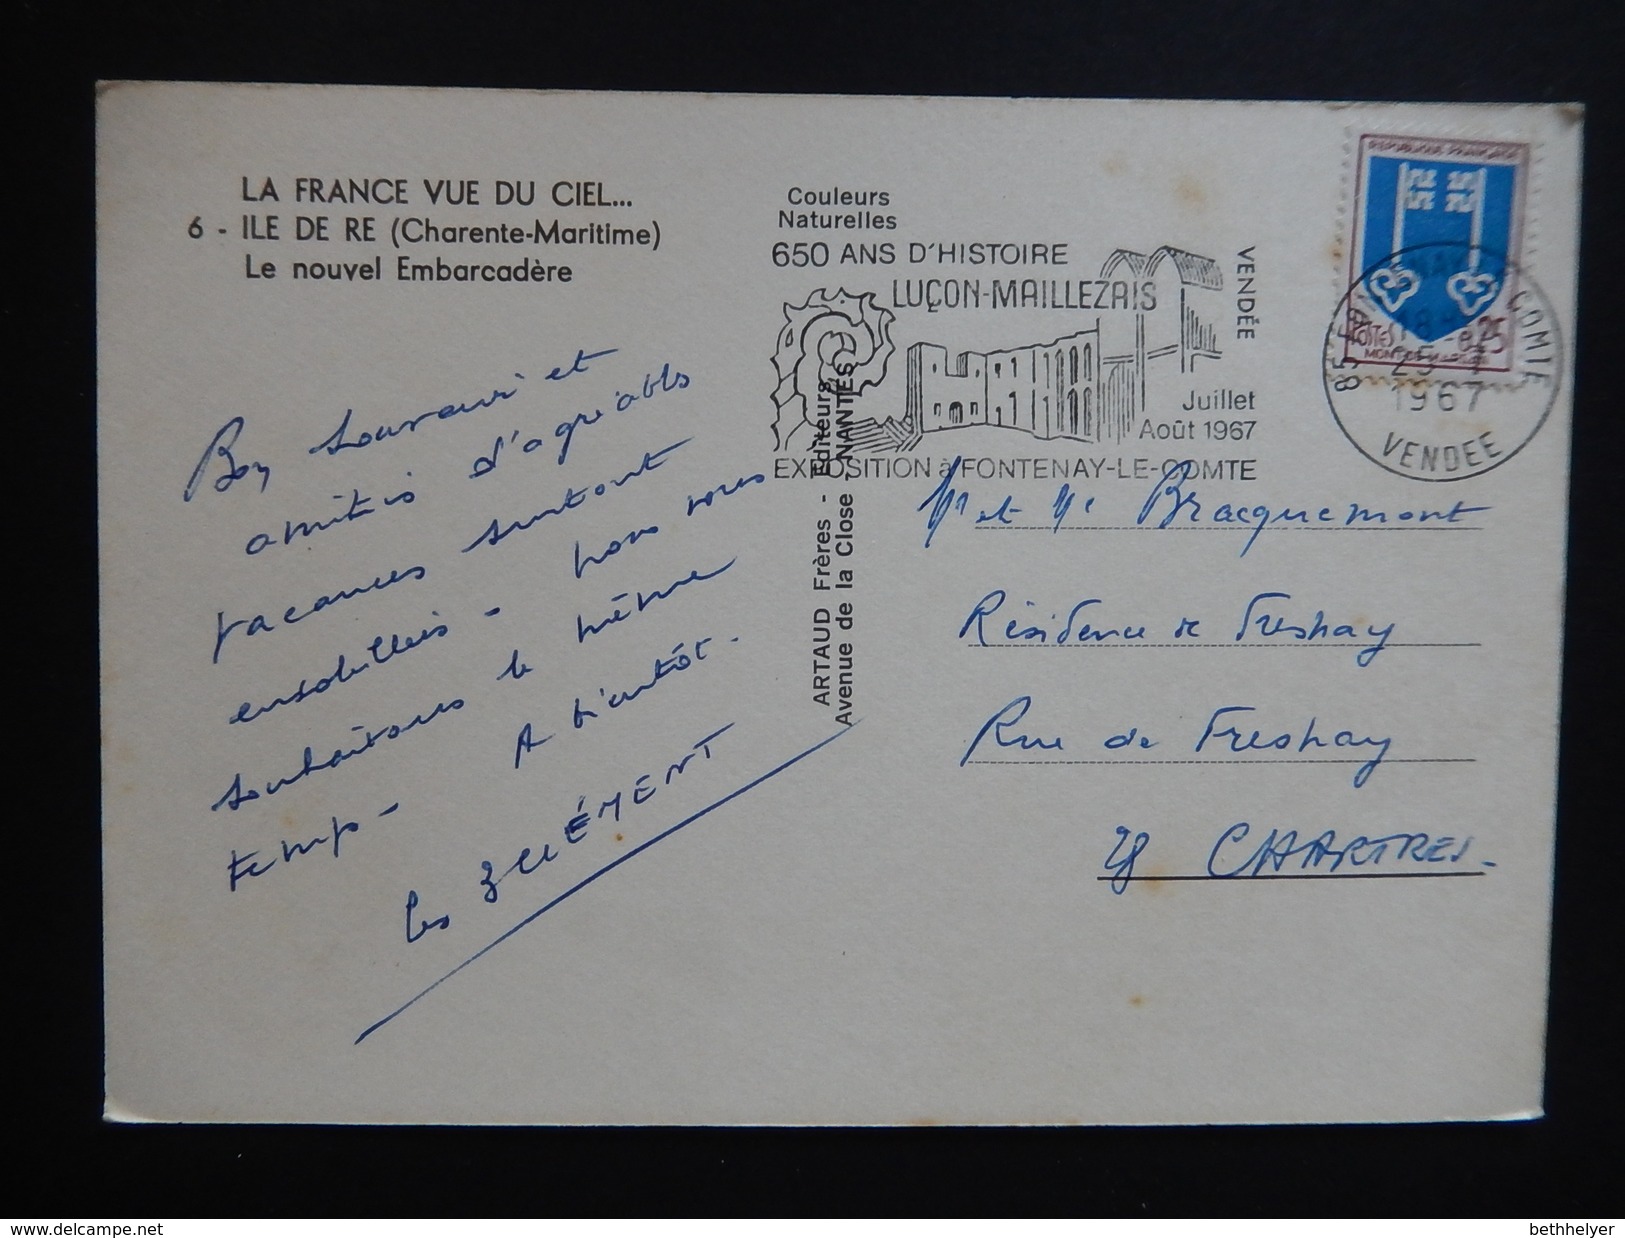 LA FRANCE VUE DU CIEL...
6 - ILE DE RE (Charente-Maritime)
Le nouvel Embarcadère
Bon souvenir et
amitiés d'agréables
vacances surtout
ensoleillées - nous vous
souhaitons le même
temps - A bientôt.
les CLÉMENT
ARTAUD Frères - Editeurs
Avenue de la Close - NANTES
Couleurs
Naturelles
650 ANS D'HISTOIRE
LUÇON-MAILLEZAIS
VENDÉE
Juillet
Août 1967
EXPOSITION à FONTENAY-LE-COMTE
REPUBLIQUE FRANÇAISE
POSTES 0,25
MONT-DE-MARSAN
85 FONTENAY LE COMTE
18H
25-7
1967
VENDEE
Mr et Me Bracquemont
Résidence de Freshay
Rue de Freshay
28 CHARTRES.
delcampe.net
bethhelyer